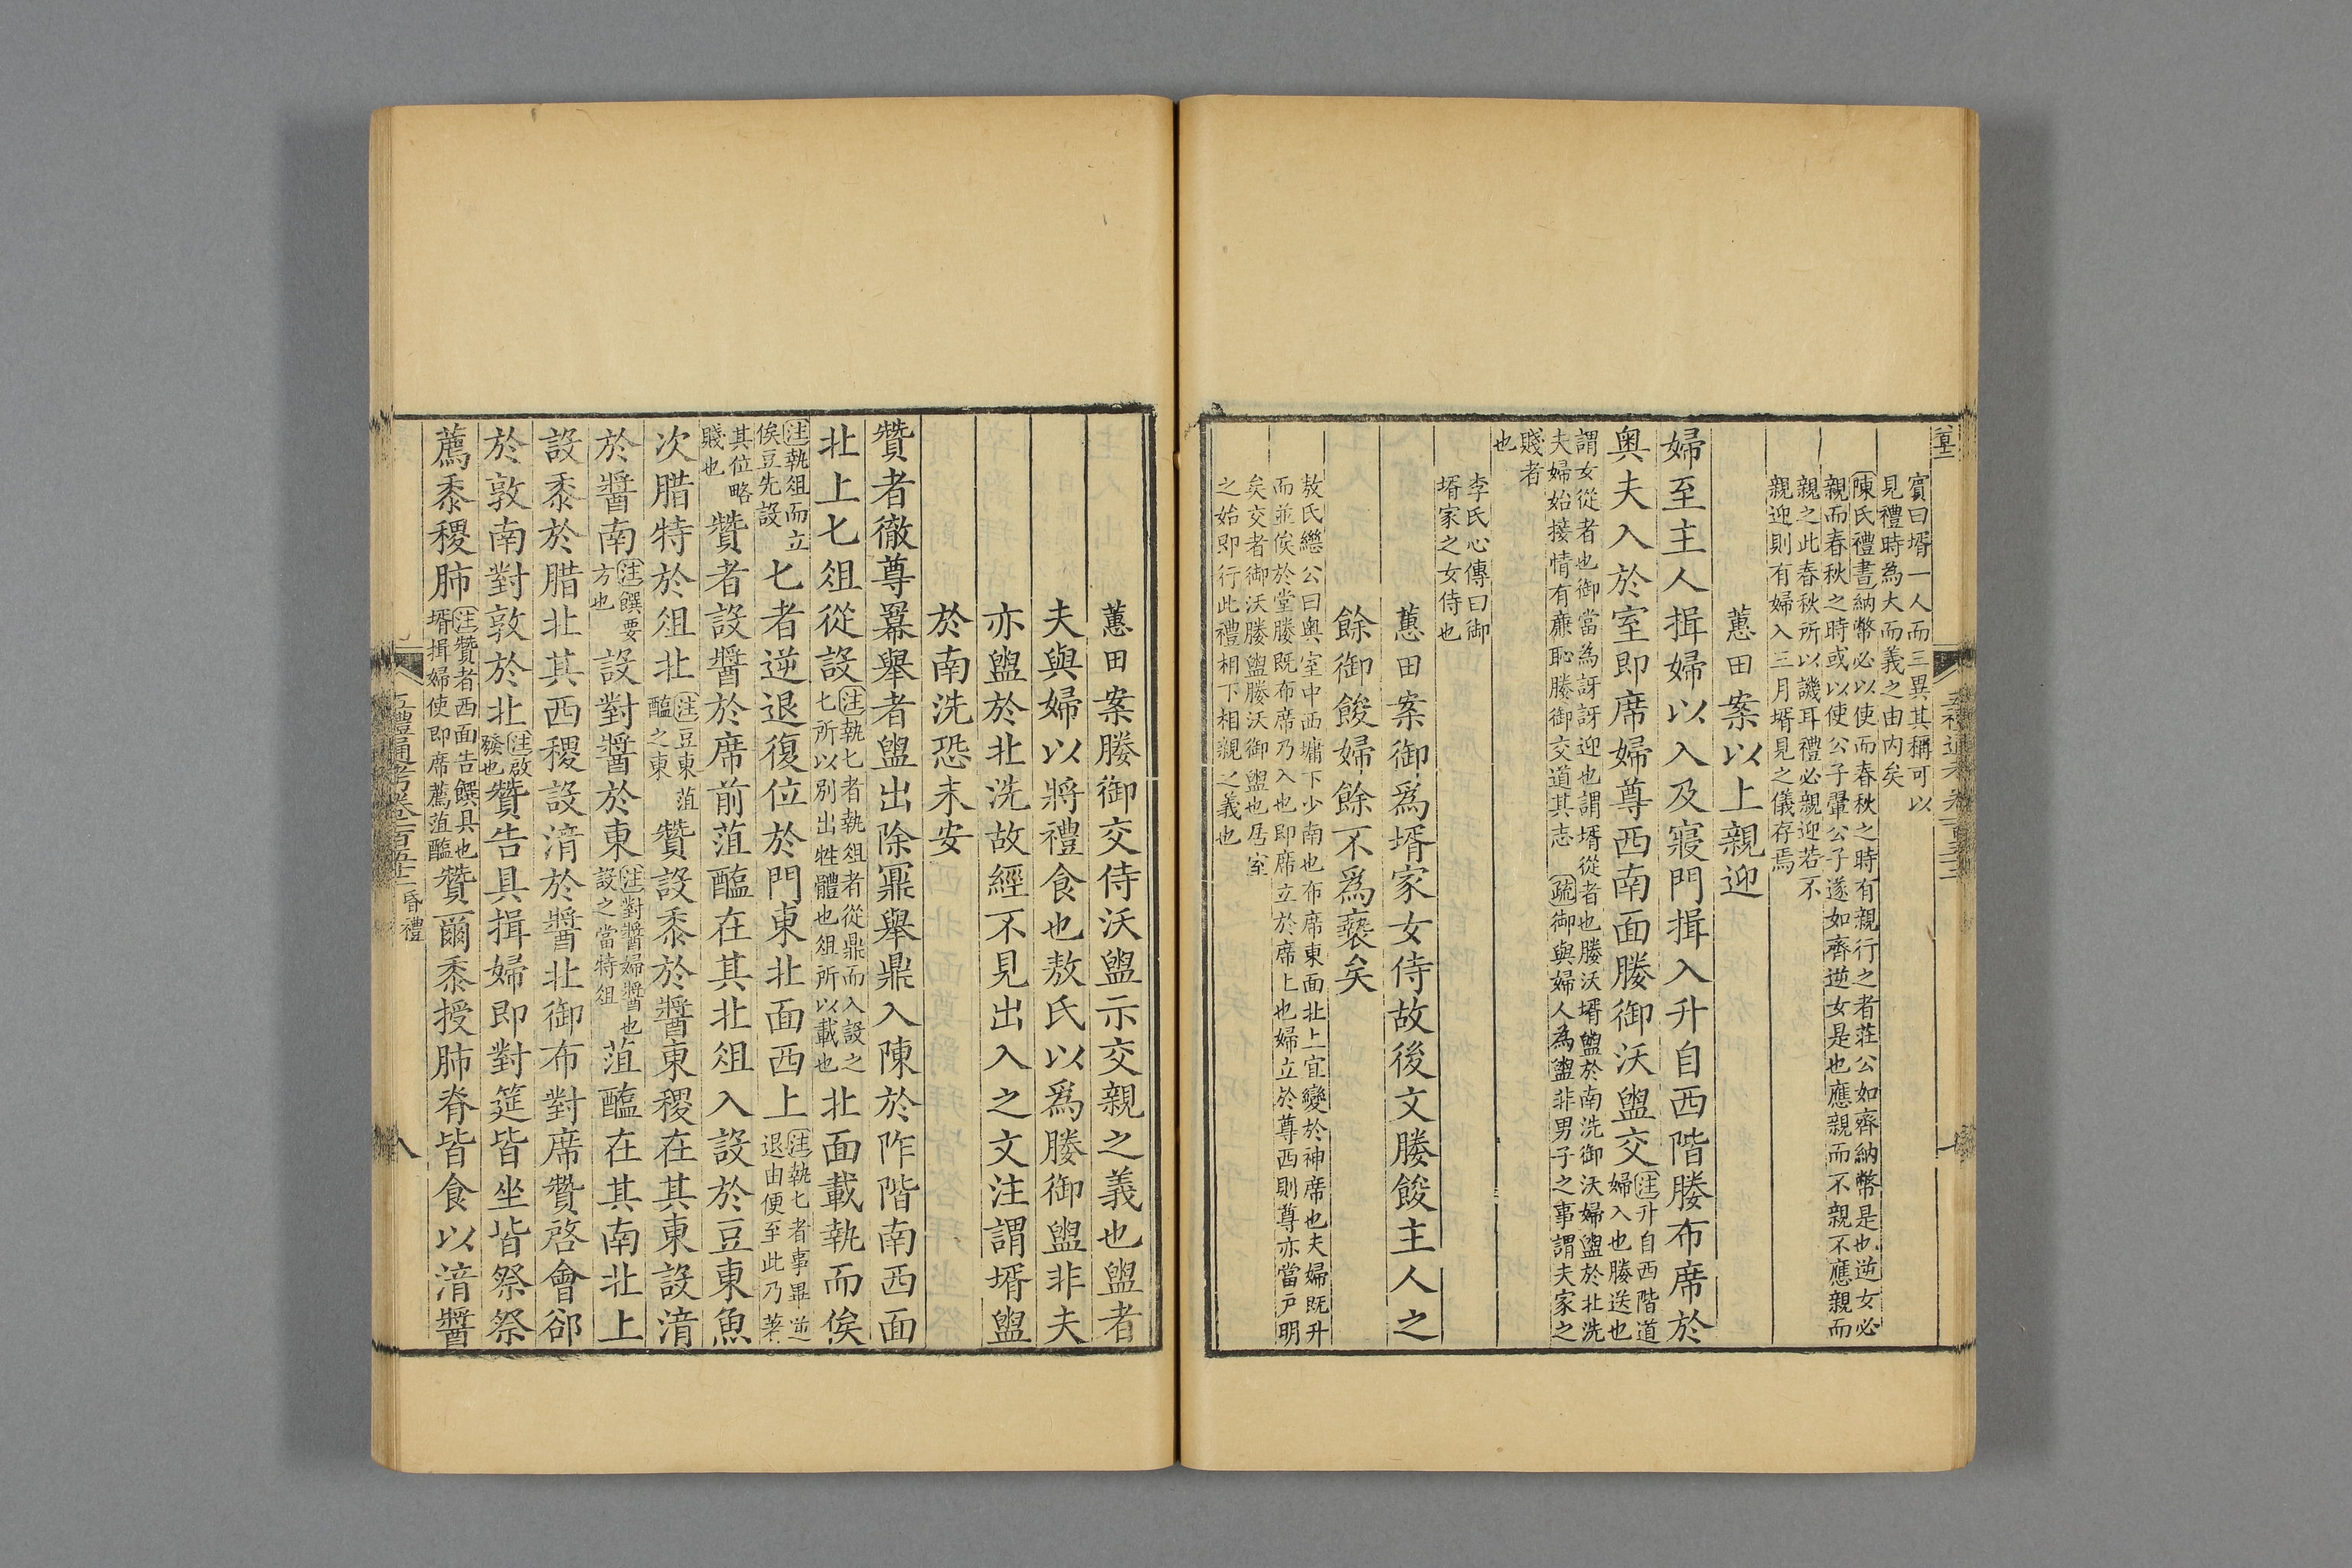 賔曰壻一人而三異其稱可以
見禮時為大而義之由内矣
陳氏禮書納幣必以使而春秋之時有親行之者莊公如齊納幣是也逆女必
親而春秋之時或以使公子翬公子遂如齊逆女是也應親而不親不應親而
親之此春秋所以譏耳禮必親迎若不
親迎則有婦入三月壻見之儀存焉
蕙田案以上親迎
婦至主人揖婦以入及寢門揖入升自西階媵布席於
奥夫入於室即席婦尊西南面媵御沃盥交
注升自西階道
婦入也媵送也
謂女從者也御當為訝訝迎也謂壻從者也媵沃壻盥於南洗御沃婦盥於北洗
夫婦始接情有亷恥媵御交道其志 疏御與婦人為盥非男子之事謂夫家之
賤者
也
李氏心傳曰御
壻家之女侍也
蕙田案御爲壻家女侍故後文媵餕主人之
餘御餕婦餘不爲褻矣
敖氏繼公曰奥室中西墉下少南也布席東面北上宜變於神席也夫婦既升
而並俟於堂媵既布席乃入也即席立於席上也婦立於尊西則尊亦當户明
矣交者御沃媵盥媵沃御盥也居室
之始即行此禮相下相親之義也
蕙田案媵御交侍沃盥示交親之義也盥者
夫與婦以將禮食也敖氏以爲媵御盥非夫
亦盥於北洗故經不見出入之文注謂壻盥
於南洗恐未安
贊者徹尊冪舉者盥出除鼏舉鼎入陳於阼階南西面
北上匕俎從設
注執匕者執俎者從鼎而入設之
匕所以別出牲體也俎所以載也
北面載執而俟
注執俎而立
俟豆先設
匕者逆退復位於門東北面西上
注執匕者事畢逆
退由便至此乃著
其位略
賤也
贊者設醬於席前菹醢在其北俎入設於豆東魚
次腊特於俎北
注豆東菹
醢之東
贊設黍於醬東稷在其東設湆
於醬南
注饌要
方也
設對醬於東
注對醬婦醬也
設之當特俎
菹醢在其南北上
設黍於腊北其西稷設湆於醬北御布對席贊啓會郤
於敦南對敦於北
注啟
發也
贊告具揖婦即對筵皆坐皆祭祭
薦黍稷肺
注贊者西面告饌具也
壻揖婦使即席薦菹醢
贊爾黍授肺脊皆食以湆醬
五禮通考卷一百五十二 昏禮
八